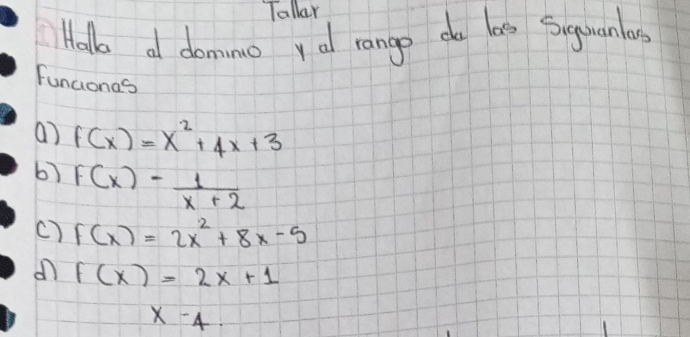 Taller
1 Halla el dominio y el rango de las siguientes
Funciones
a) f(x) = x² + 4x + 3
b) f(x) = 1
x + 2
c) f(x) = 2x² + 8x - 5
d) f(x) = 2x + 1
x - 4.